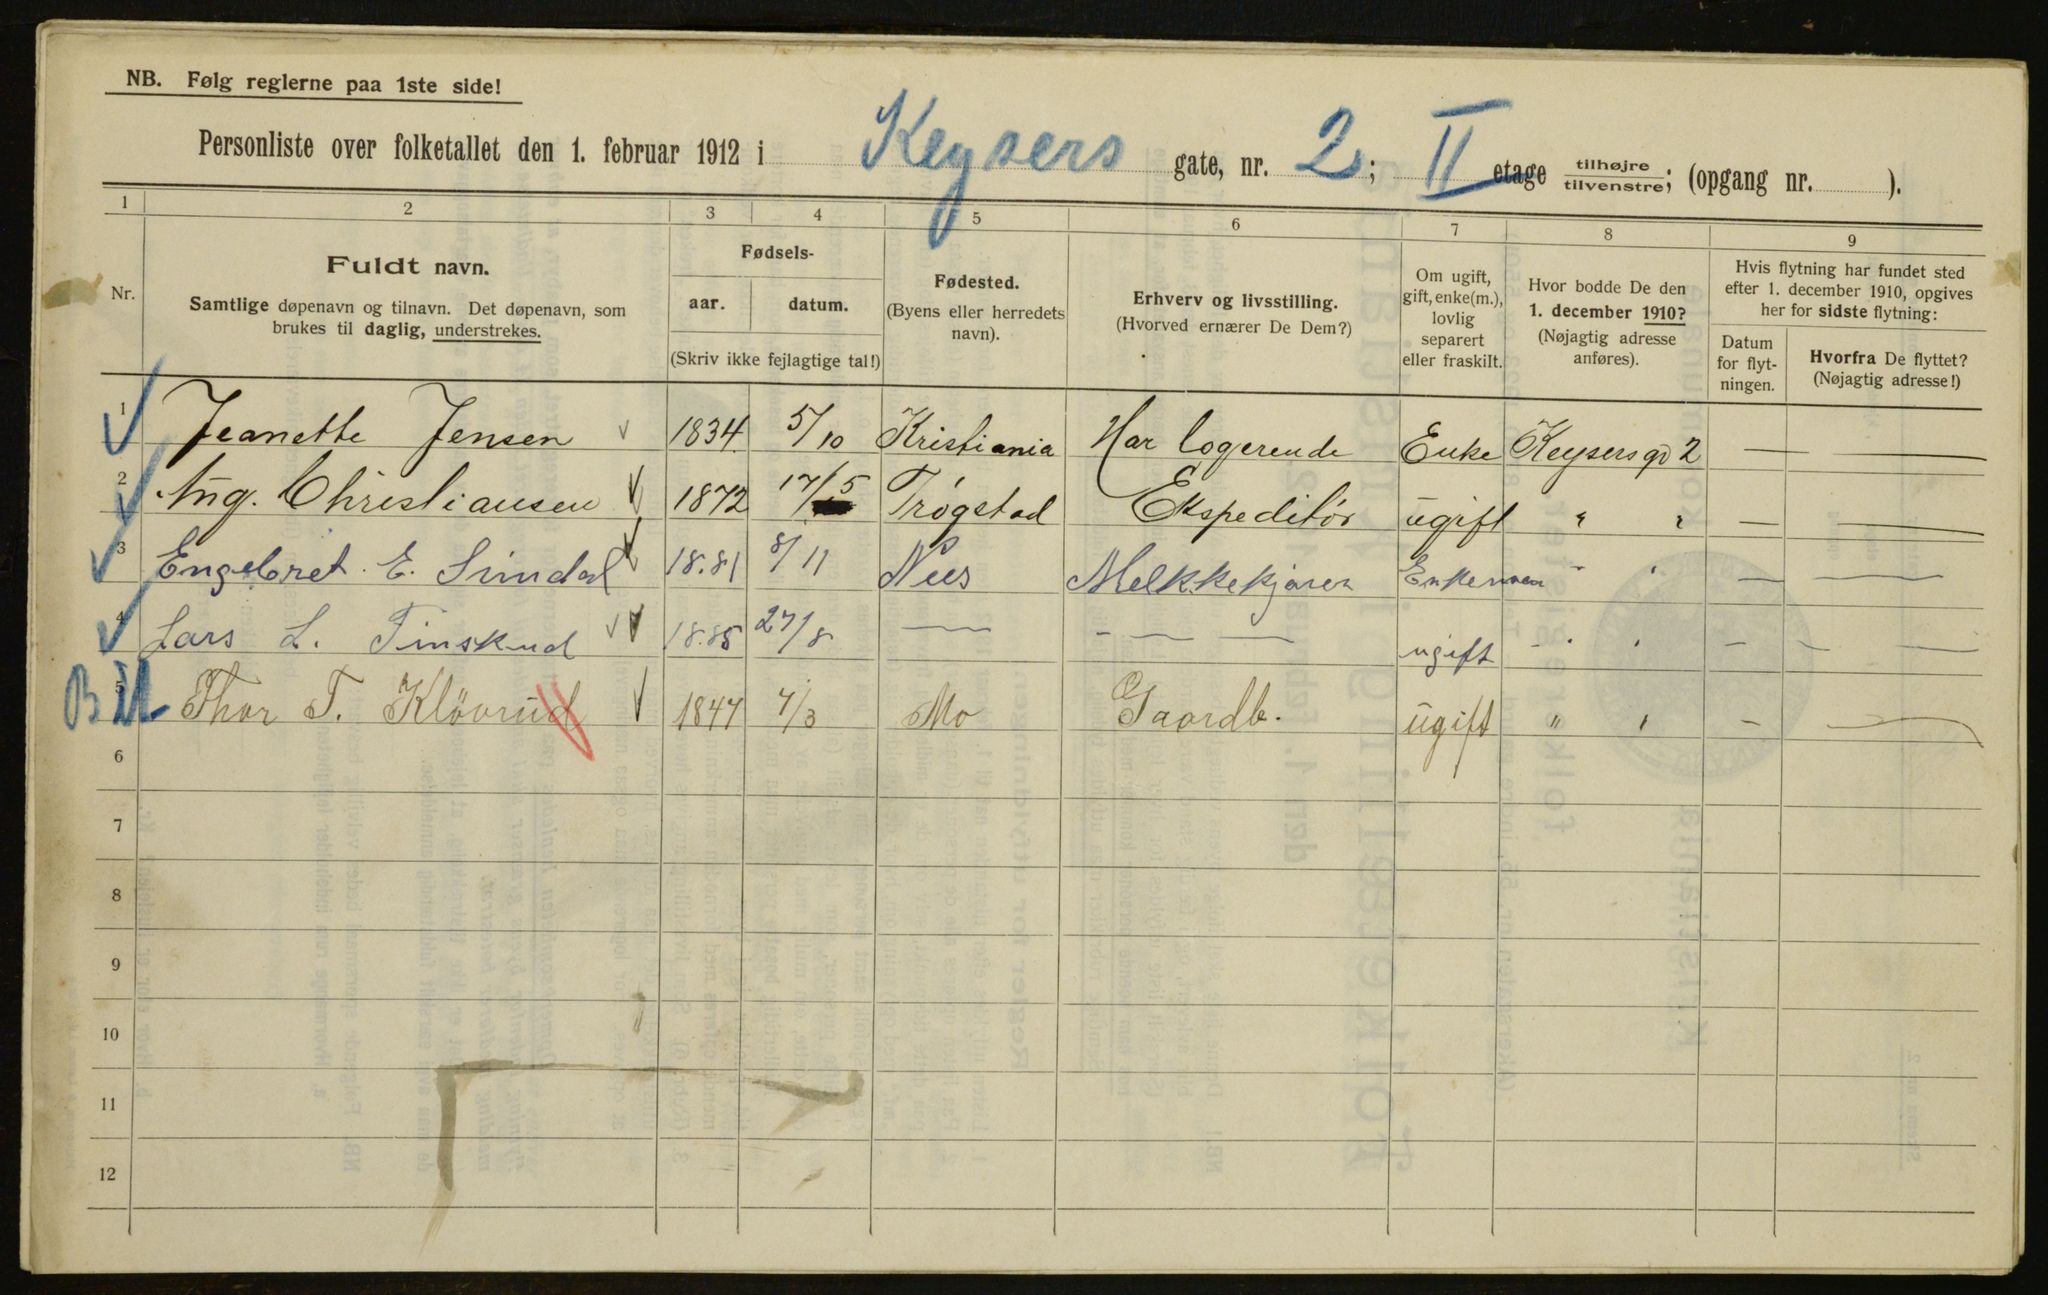 NB. Følg reglerne paa 1ste side!
Personliste over folketallet den 1. februar 1912 i Keysers gate, nr. 2; II etage tilhøjre tilvenstre; (opgang nr. ).
1 2 3 4 5 6 7 8 9
Nr.
Fuldt navn.
Samtlige døpenavn og tilnavn. Det døpenavn, som
brukes til daglig, understrekes.
Fødsels-
aar. datum.
(Skriv ikke fejlagtige tal!)
Fødested.
(Byens eller herredets
navn).
Erhverv og livsstilling.
(Hvorved ernærer De Dem?)
Om ugift,
gift, enke(m.),
lovlig
separert
eller fraskilt.
Hvor bodde De den
1. december 1910?
(Nøjagtig adresse
anføres).
Hvis flytning har fundet sted
efter 1. december 1910, opgives
her for sidste flytning:
Datum
for flyt-
ningen.
Hvorfra De flyttet?
(Nøjagtig adresse!)
1 Jeanette Jensen 1834 5/10 Kristiania Har logerende Enke Keysersgd 2 — —
2 Aug. Christiansen 1872 17/5 Trøgstad Ekspeditør ugift " " — —
3 Engebret E. Simdal 18.81 8/11 Nees Melkkekjører Enkeman " " — —
4 Lars L. 18.85 27/8 — — — — ugift " " — — —
5 Thor T. Kløvrud 1847 7/3 Mo Gaardb. ugift " " — —
6
7
8
9
10
11
12